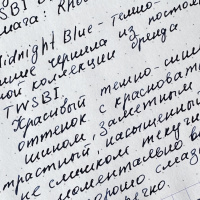 SBI
мага: Rho
Midnight Blue - темно-
чернила из посто
ной коллекции бренда
TWSBI.
Красивый темно-син
оттенок с красноваты
шином, заметным
трастный, насыщенный
не слишком текуч
моментально в
хорошо. сма